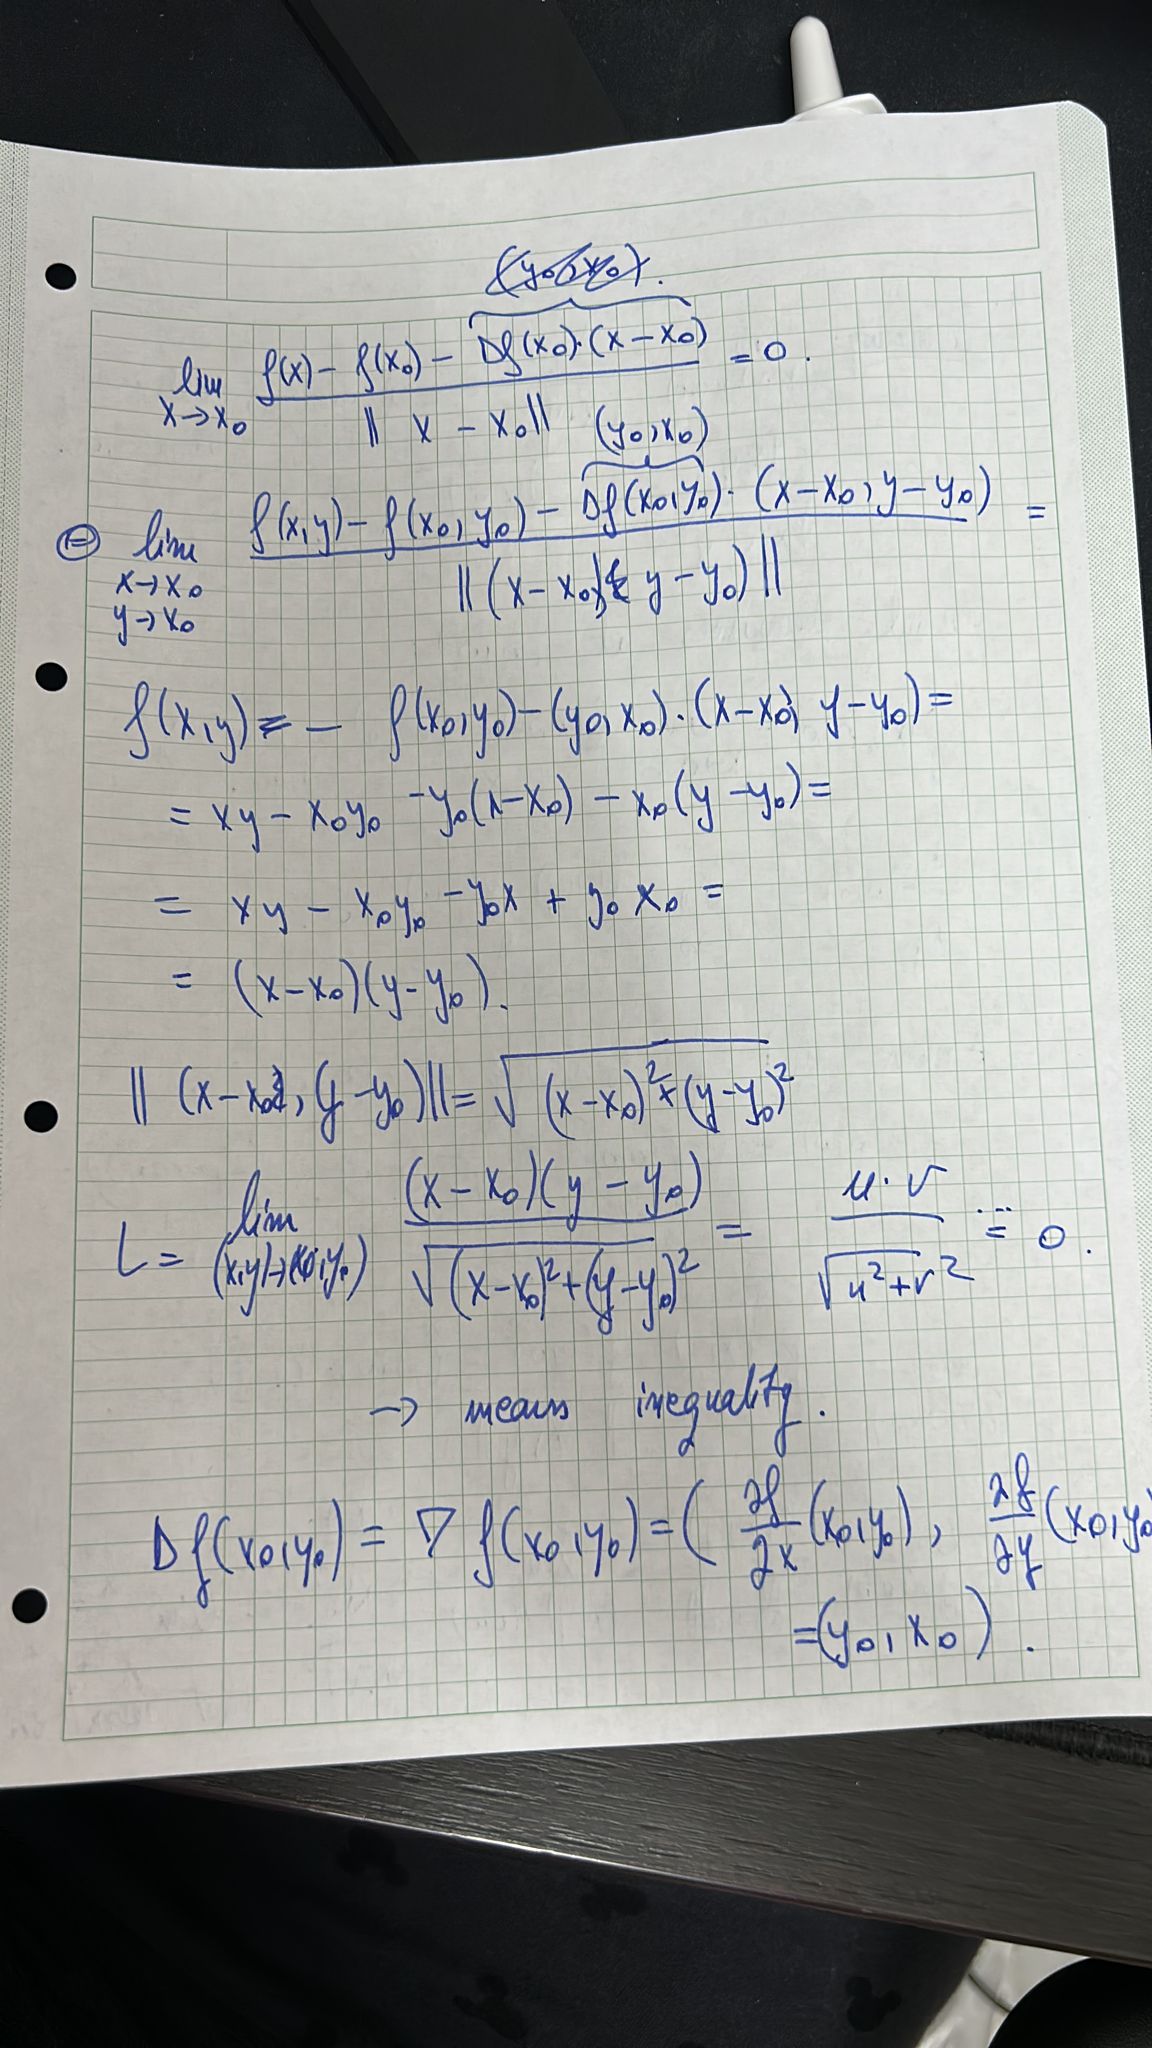 (y₀, x₀).
lim x→x₀ (f(x) − f(x₀) − Df(x₀)·(x − x₀)) / ‖x − x₀‖ = 0.
(y₀, x₀)
⊜ lim x→x₀ y→x₀ (f(x,y) − f(x₀,y₀) − Df(x₀,y₀)·(x−x₀, y−y₀)) / ‖(x−x₀, y−y₀)‖ =
f(x,y) − f(x₀,y₀) − (y₀,x₀)·(x−x₀, y−y₀) =
= xy − x₀y₀ − y₀(x−x₀) − x₀(y−y₀) =
= xy − x₀y₀ − y₀x + y₀x₀ =
= (x−x₀)(y−y₀).
‖(x−x₀, (y−y₀)‖ = √((x−x₀)² + (y−y₀)²)
L = lim (x,y)→(x₀,y₀) (x−x₀)(y−y₀) / √((x−x₀)² + (y−y₀)²) = u·v / √(u²+v²) =⃛ 0.
→ means inequality.
Df(x₀,y₀) = ∇f(x₀,y₀) = ( ∂f/∂x (x₀,y₀), ∂f/∂y (x₀,y₀
= (y₀, x₀).